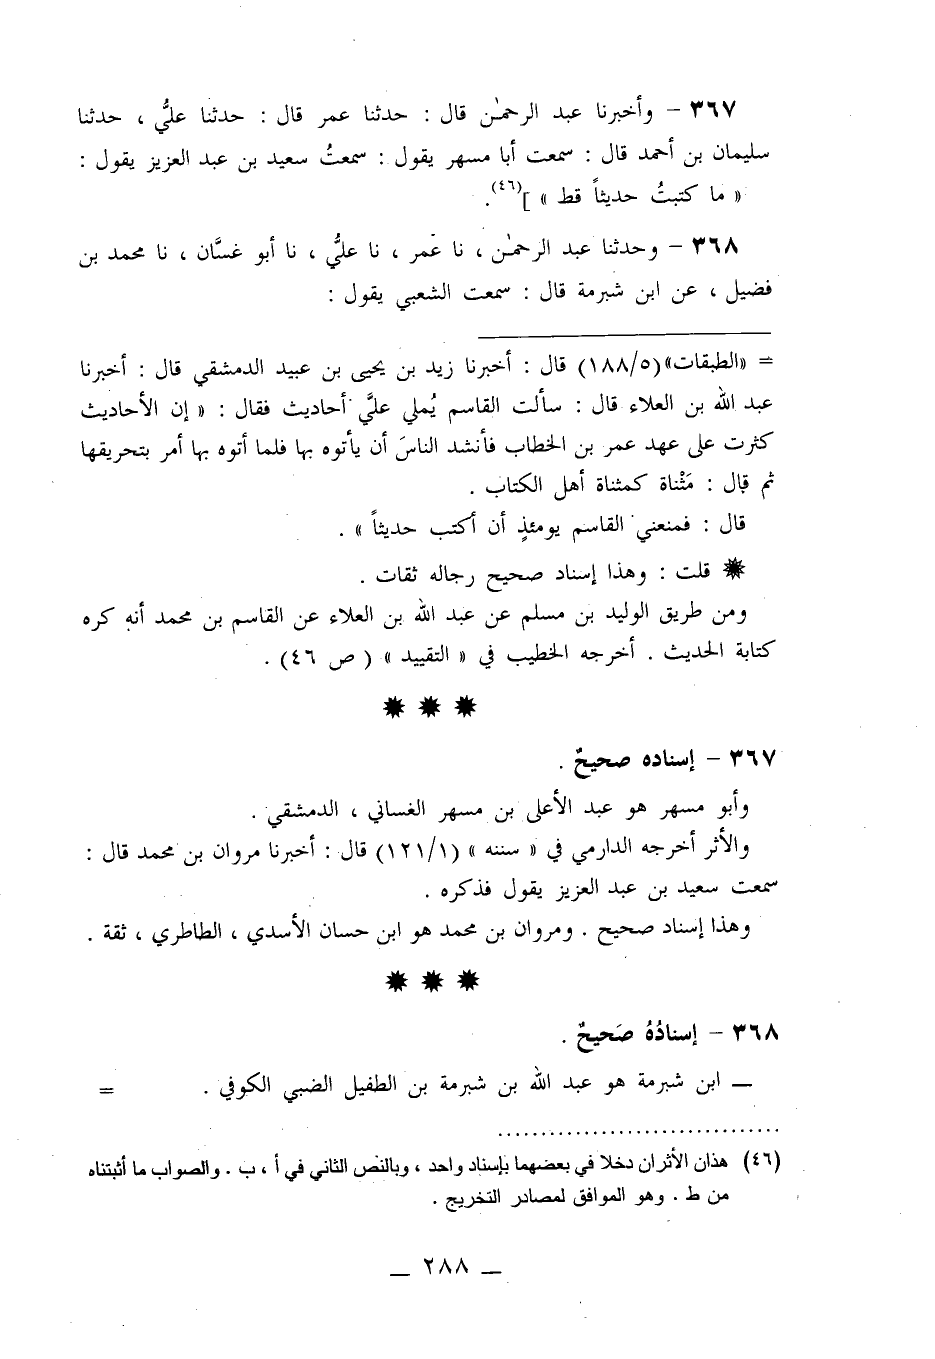 ٣٦٧ – وأخبرنا عبد الرحمٰن قال : حدثنا عمر قال : حدثنا عليُّ ، حدثنا
سليمان بن أحمد قال : سمعت أبا مسهر يقول : سمعتُ سعيد بن عبد العزيز يقول :
« ما كتبتُ حديثاً قط » ](٤٦).
٣٦٨ – وحدثنا عبد الرحمٰن ، نا عمر ، نا عليُّ ، نا أبو غسَّان ، نا محمد بن
فضيل ، عن ابن شبرمة قال : سمعت الشعبي يقول :
= «الطبقات»(١٨٨/٥) قال : أخبرنا زيد بن يحيى بن عبيد الدمشقي قال : أخبرنا
عبد الله بن العلاء قال : سألت القاسم يُملي عليَّ أحاديث فقال : « إن الأحاديث
كثرت على عهد عمر بن الخطاب فأنشد الناسَ أن يأتوه بها فلما أتوه بها أمر بتحريقها
ثم قال : مَثْناة كمثناة أهل الكتاب .
قال : فمنعني القاسم يومئذٍ أن أكتب حديثاً » .
✹ قلت : وهذا إسناد صحيح رجاله ثقات .
ومن طريق الوليد بن مسلم عن عبد الله بن العلاء عن القاسم بن محمد أنه كره
كتابة الحديث . أخرجه الخطيب في « التقييد » ( ص ٤٦) .
✹ ✹ ✹
٣٦٧ – إسناده صحيحٌ .
وأبو مسهر هو عبد الأعلى بن مسهر الغساني ، الدمشقي .
والأثر أخرجه الدارمي في « سننه » (١٢١/١) قال : أخبرنا مروان بن محمد قال :
سمعت سعيد بن عبد العزيز يقول فذكره .
وهذا إسناد صحيح . ومروان بن محمد هو ابن حسان الأسدي ، الطاطري ، ثقة .
✹ ✹ ✹
٣٦٨ – إسنادُهُ صَحيحٌ .
— ابن شبرمة هو عبد الله بن شبرمة بن الطفيل الضبي الكوفي . =
(٤٦) هذان الأثران دخلا في بعضهما بإسناد واحد ، وبالنص الثاني في أ ، ب . والصواب ما أثبتناه
من ط . وهو الموافق لمصادر التخريج .
— ٢٨٨ —